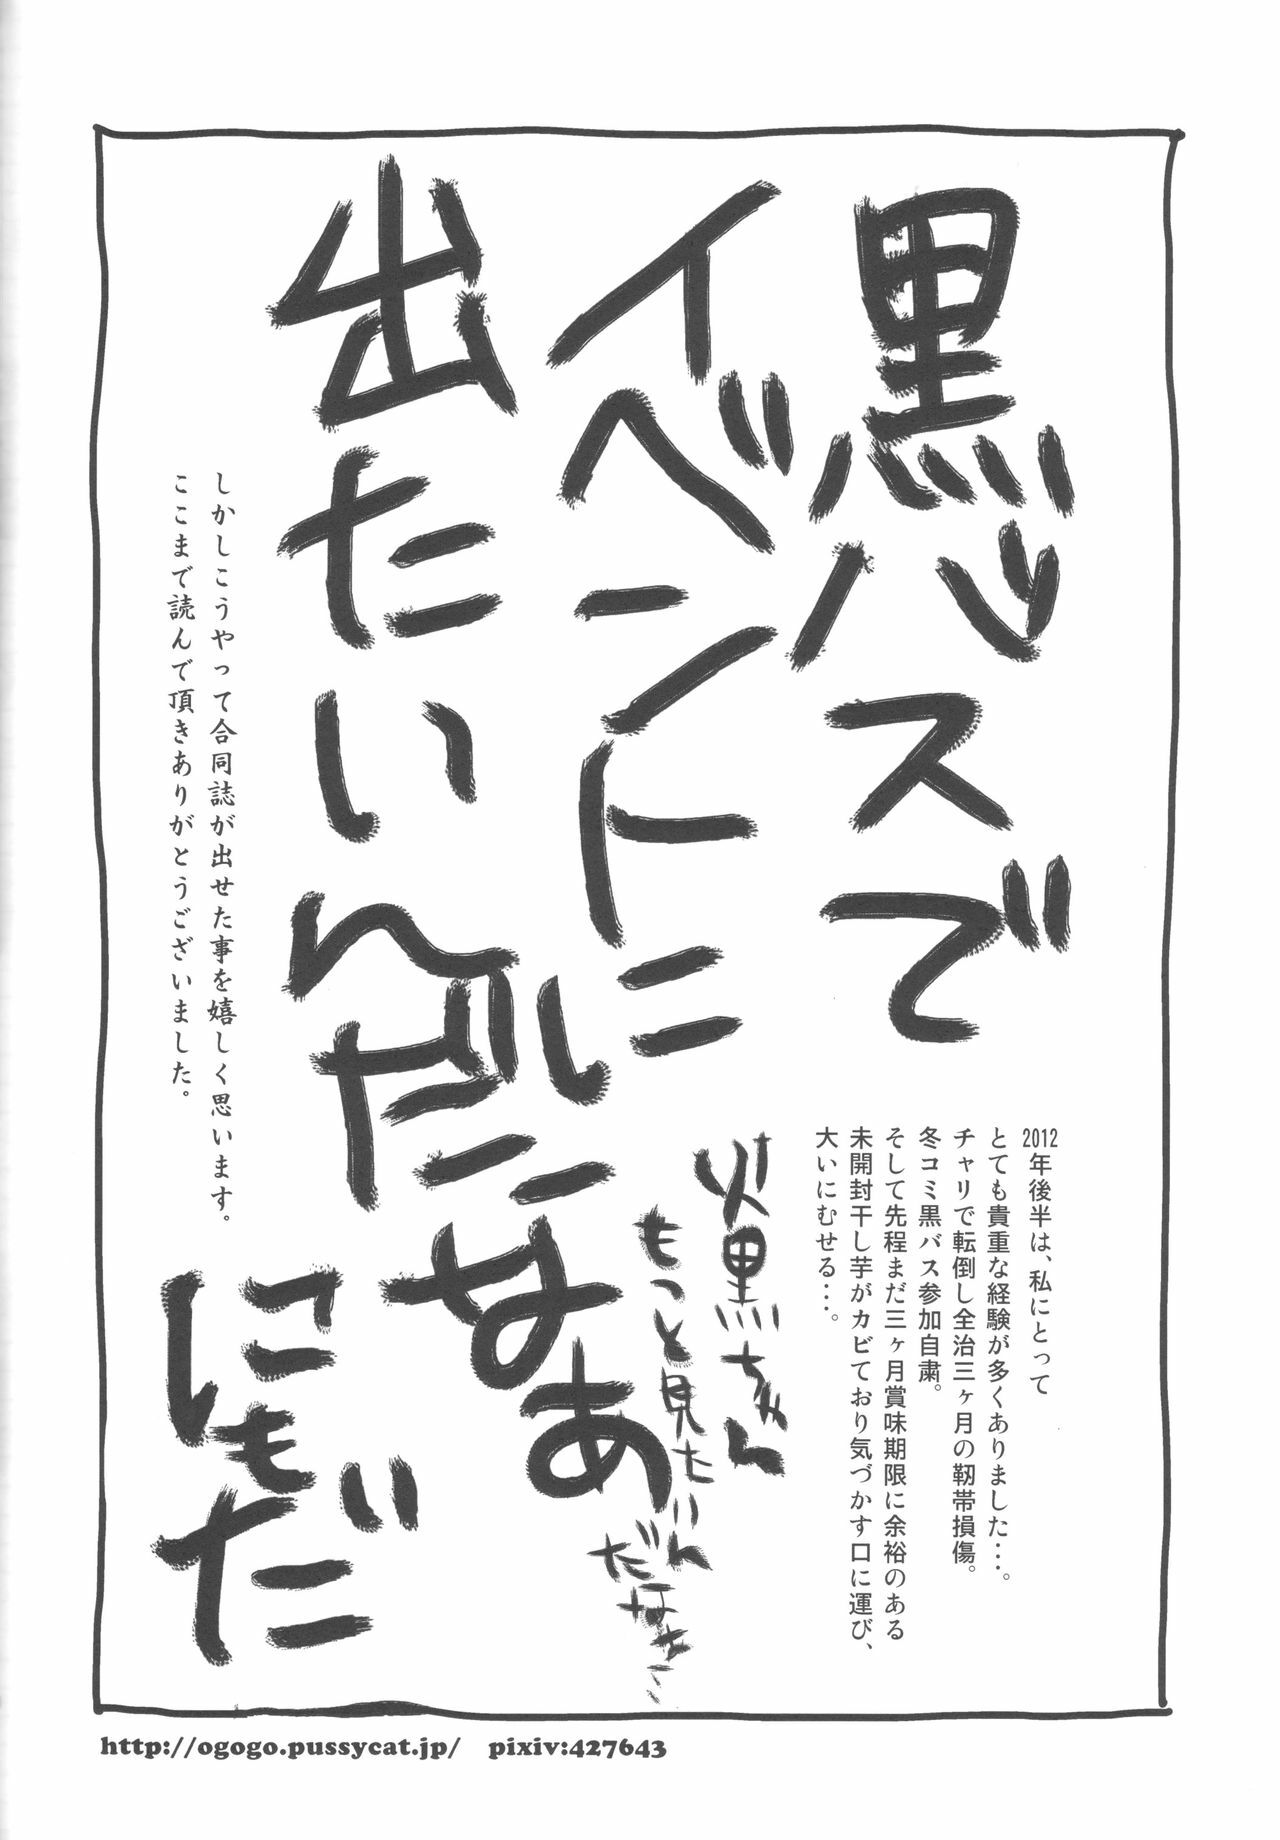 黒バスで
イベントに
出たいんだいなあ
2012年後半は、私にとって
とても貴重な経験が多くありました・・・。
チャリで転倒し全治三ヶ月の靭帯損傷。
冬コミ黒バス参加自粛。
そして先程まだ三ヶ月賞味期限に余裕のある
未開封干し芋がカビており気づかす口に運び、
大いにむせる・・・。
火黒ちゃん
もっと見たいん
だなあ
しかしこうやって合同誌が出せた事を嬉しく思います。
ここまで読んで頂きありがとうございました。
http://ogogo.pussycat.jp/ pixiv:427643